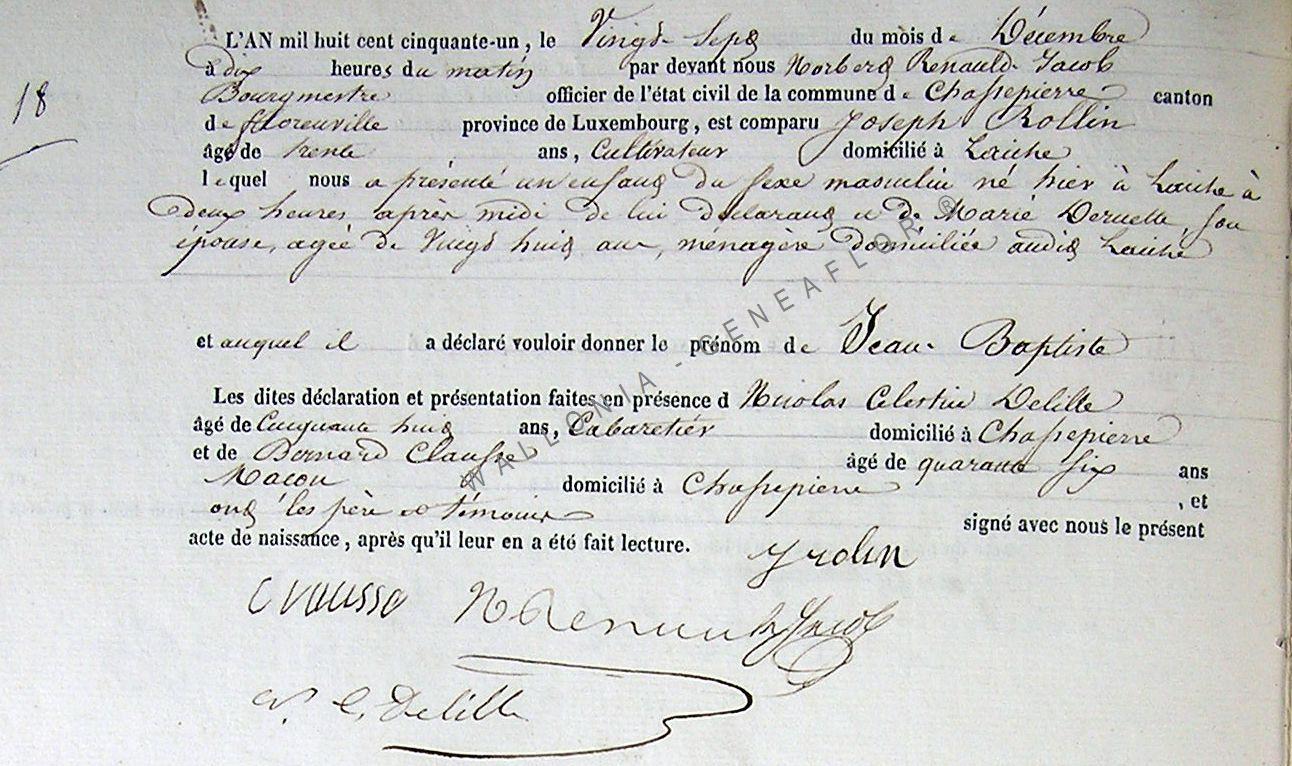 L'AN mil huit cent cinquante-un, le Vingt Sept du mois de Décembre
à dix heures du matin par devant nous Norbert Renauld-Jacob
18
Bourgmestre officier de l'état civil de la commune de Chassepierre canton
de florenville province de Luxembourg, est comparu Joseph Rollin
âgé de trente ans, Cultivateur domicilié à Laiche
lequel nous a présenté un enfant du sexe masculin né hier à Laiche à
deux heures après midi de lui déclarant et de Marie Deruette, son
épouse, agée de Vingt huit ans, ménagère domiciliée audit Laiche
et auquel il a déclaré vouloir donner le prénom de Jean-Baptiste
Les dites déclaration et présentation faites en présence d Nicolas Celestin Delille
âgé de Cinquante huit ans, Cabaretier domicilié à Chassepierre
et de Bernard Clausse âgé de quarante six ans
Macon domicilié à Chassepierre
, et
ont les père et témoins signé avec nous le présent
acte de naissance, après qu'il leur en a été fait lecture.
J rolin
Clausse N Renauld Jacob
N. C. Delille
WALLONIA - GENEAFLOR ®